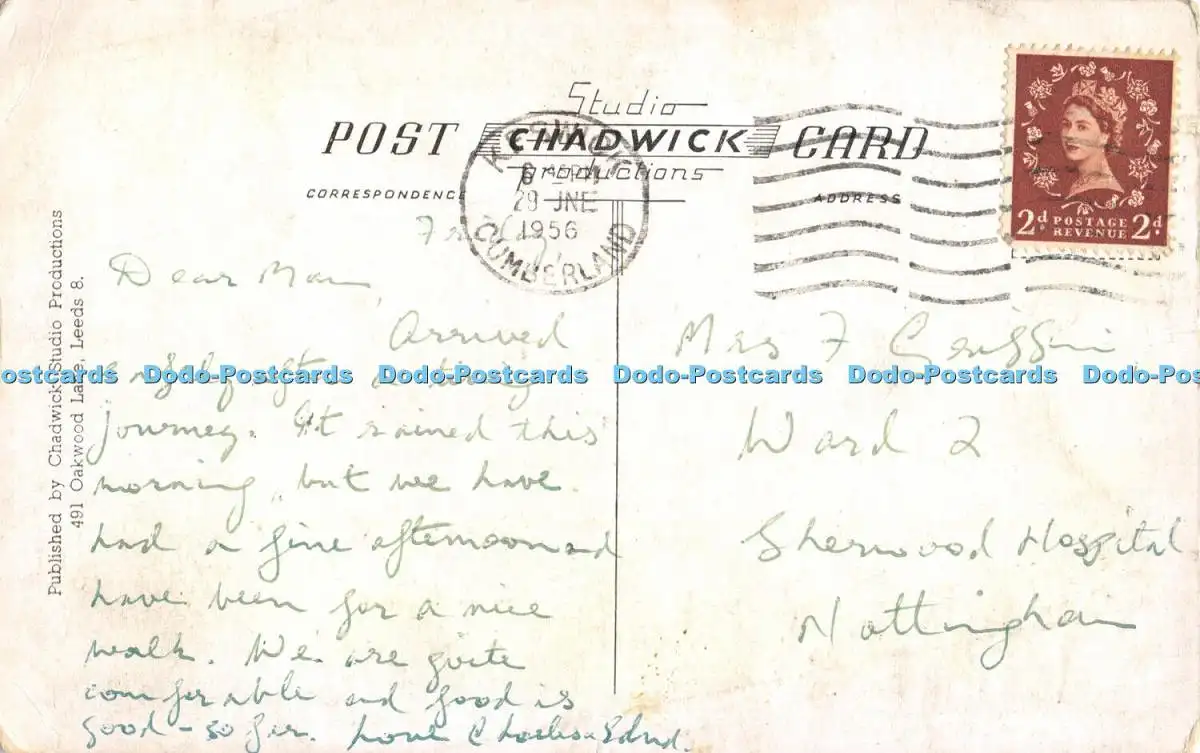 Studio
POST CHADWICK CARD
Productions
CORRESPONDENCE
ADDRESS
KESWICK
29 JNE
1956
CUMBERLAND
2d POSTAGE REVENUE 2d
Published by Chadwick Studio Productions
491 Oakwood Lane, Leeds 8.
Dear Mam,
Arrived
a tiring
journey. It rained this
morning, but we have
had a fine afternoon and
have been for a nice
walk. We are quite
comforable and food is
good - so far. Love Charles
Mrs F Griffin
Ward 2
Sherwood Hospital
Nottingham
Dodo-Postcards Dodo-Postcards Dodo-Postcards Dodo-Postcards